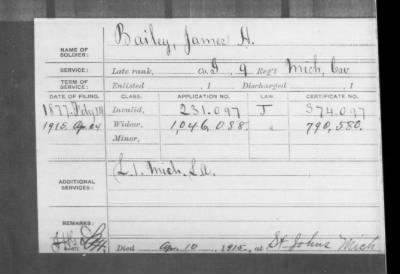 NAME OF SOLDIER: Bailey, James H.
SERVICE: Late rank, Co. I, 9 Reg't Mich. Cav
TERM OF SERVICE: Enlisted , 1 Discharged , 1
DATE OF FILING. CLASS. APPLICATION NO. LAW. CERTIFICATE NO.
1877. July Invalid, 231.097 J 374.097
1915. Ap. 24 Widow, 1,046,088. 790,580.
Minor,
ADDITIONAL SERVICES: L. 1. Mich. L.A.
REMARKS:
Died Ap. 10, 1915, at St. Johns Mich